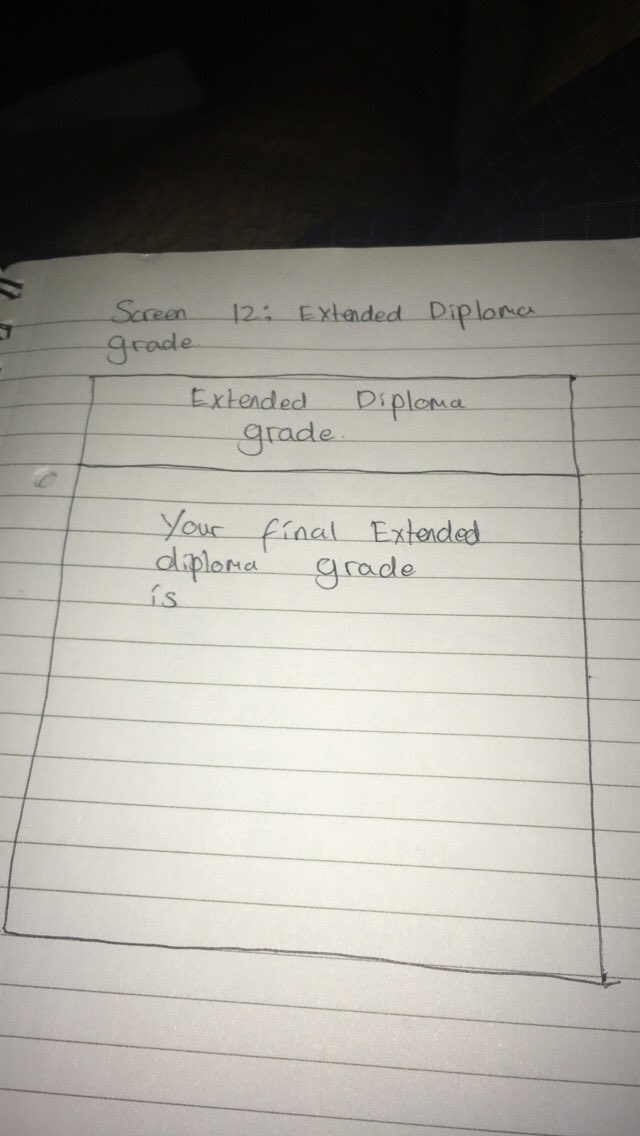 Screen 12: Extended Diploma
grade.
Extended Diploma
grade.
Your final Extended
diploma grade
is